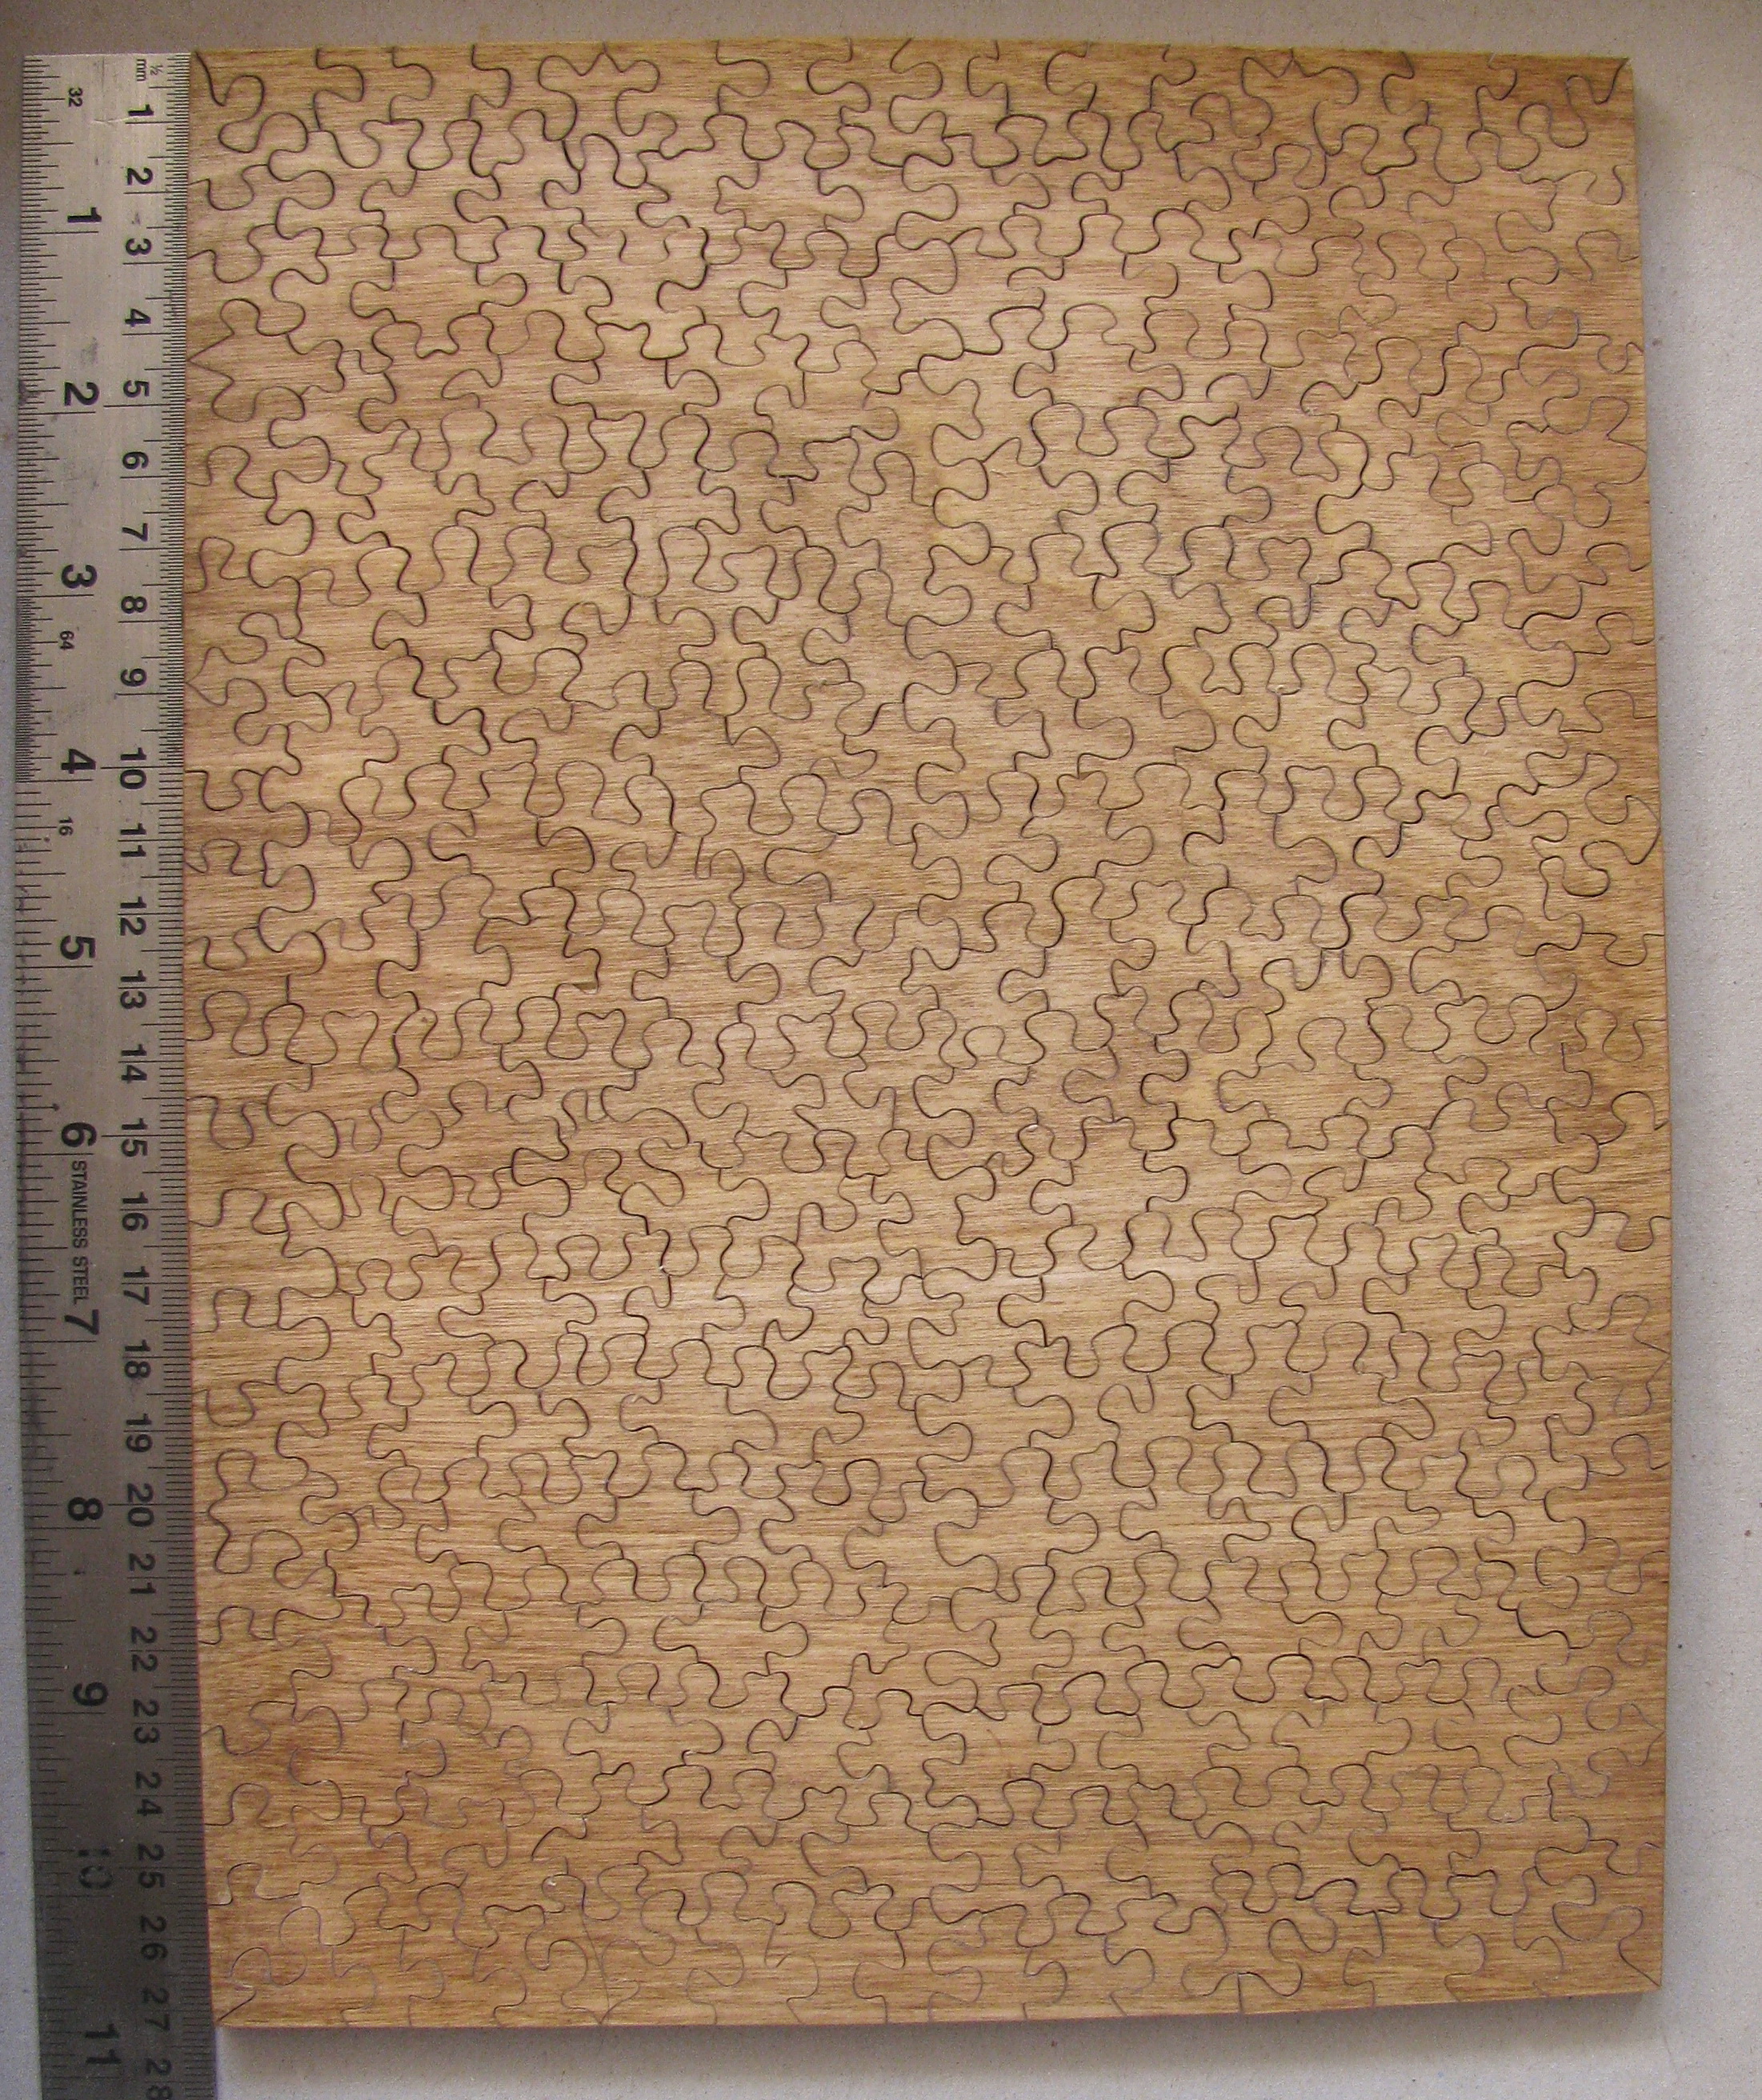 ½
mm
32
1
2
3
4
5
6
7
8
9
10
11
12
13
14
15
16
17
18
19
20
21
22
23
24
25
26
27
28
1
2
3
64
4
16
5
6
STAINLESS STEEL
7
8
9
10
11